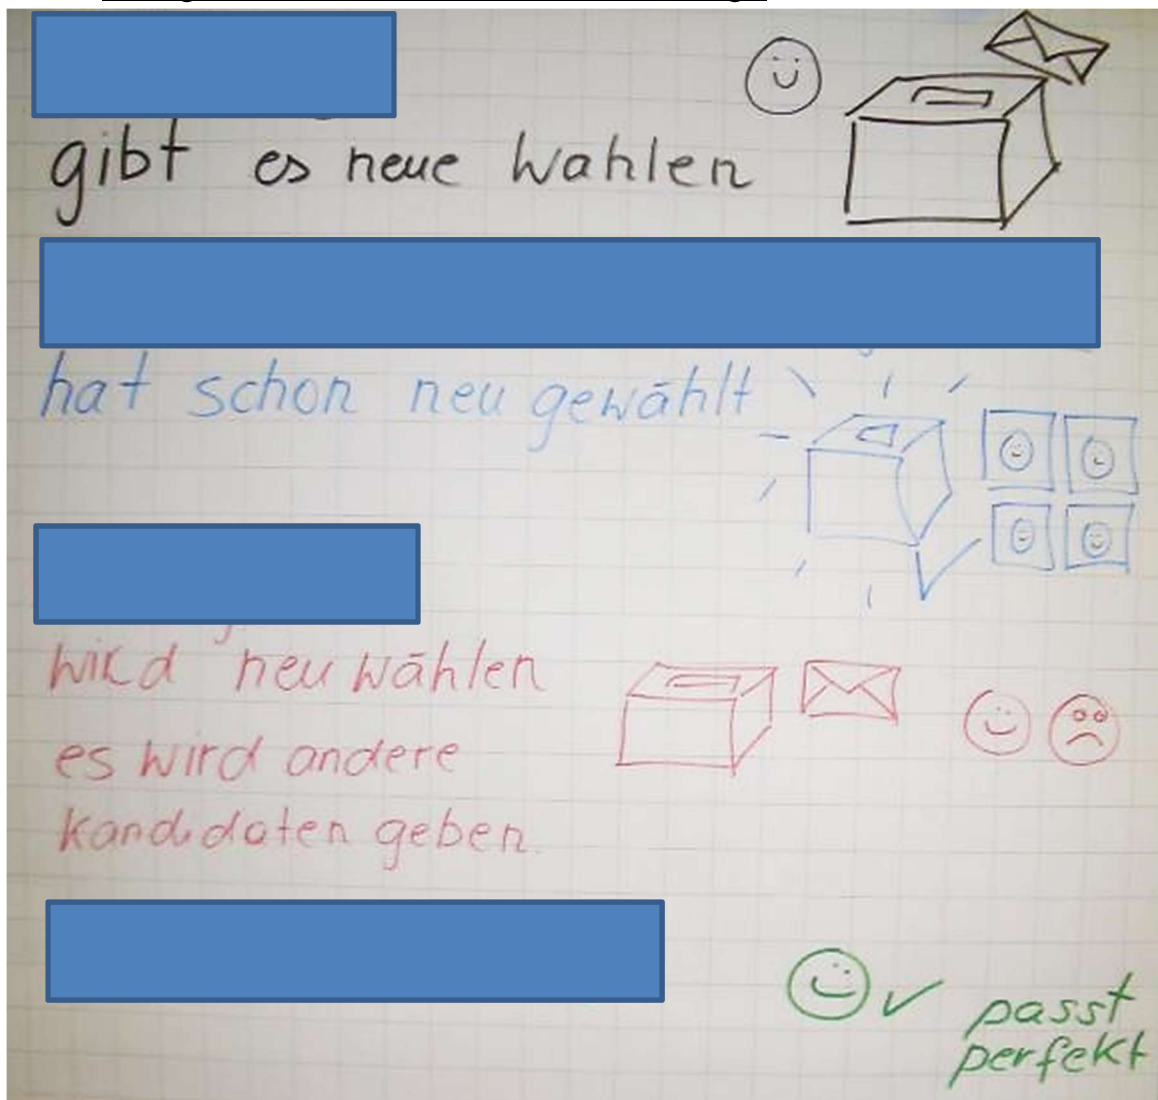 gibt es neue Wahlen
hat schon neu gewählt
wird neu wählen
es wird andere
kandidaten geben.
passt
perfekt